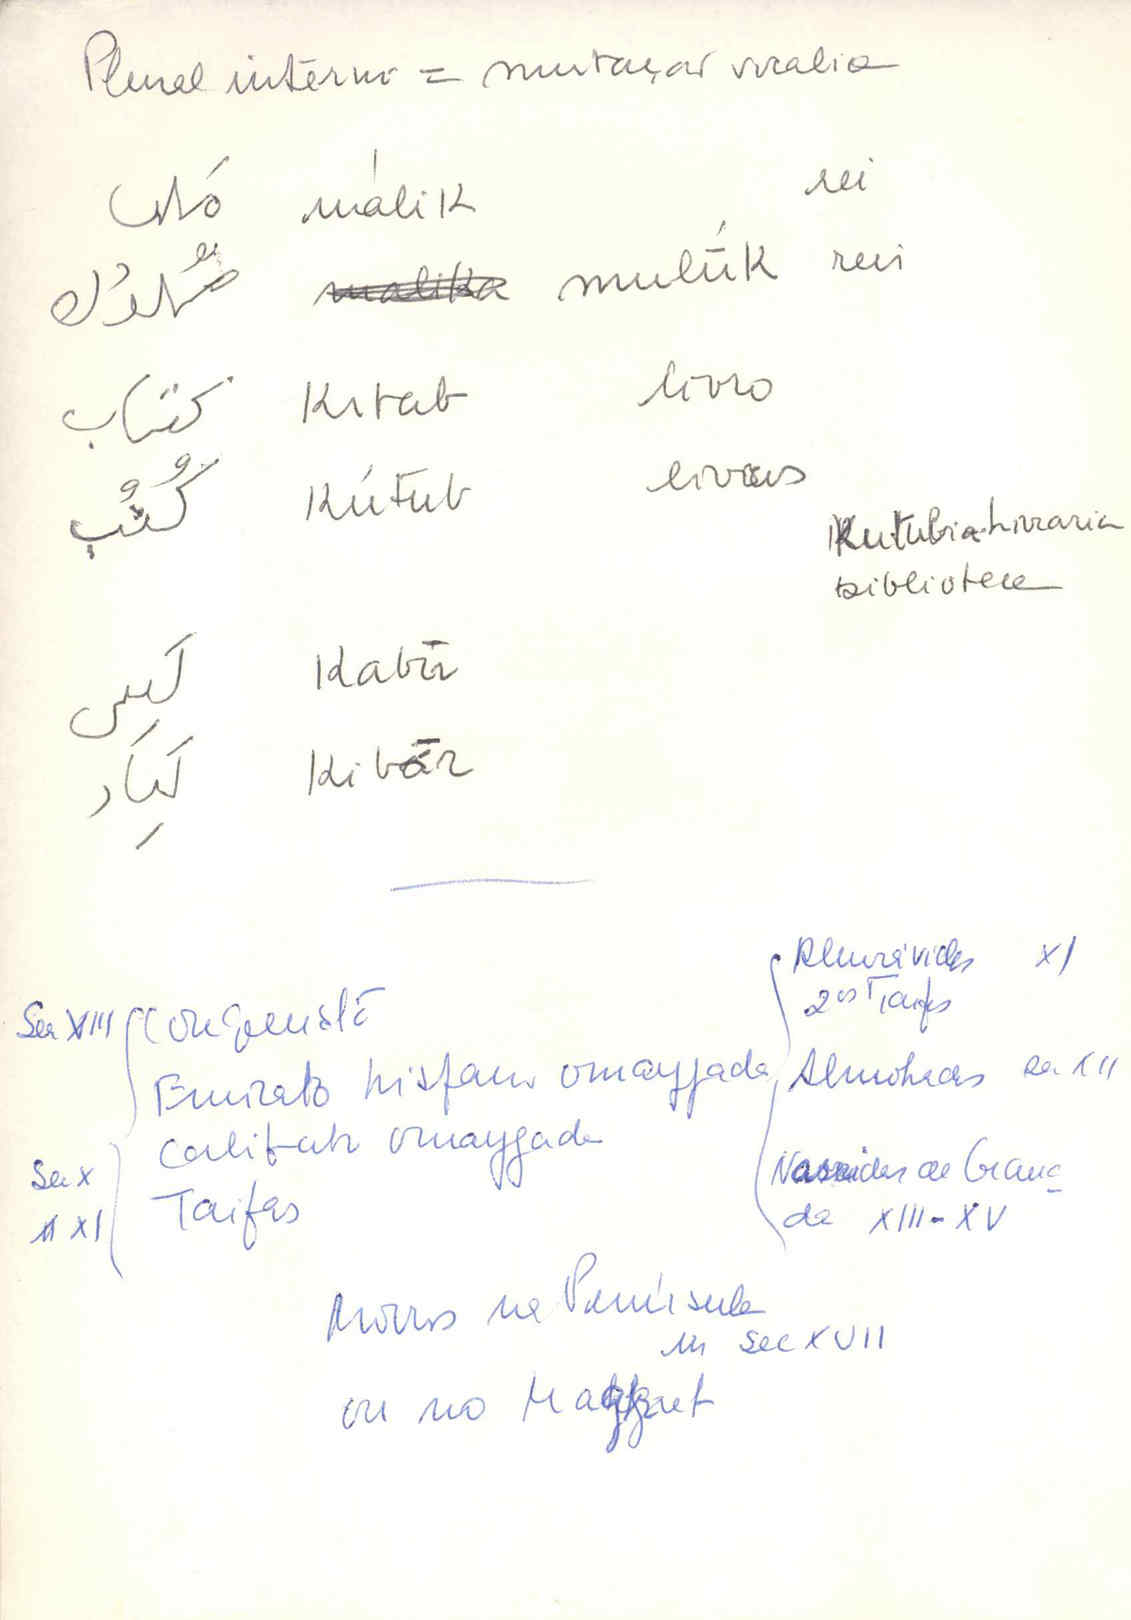 Plural interno = mutação vocalica
ملك málik rei
مُلُوك malika mulúk reis
كتاب Kitab livro
كُتُب Kútub livros
Kutubia-Livraria
biblioteca
كَبِير Kabīr
كِبَار Kibār
Almorávides XI
2os Taifas
Sec VIII Conquista
Emirato hispano omayyada Almohadas sec XII
Califato omayyada
Sec X Nasridas de Grana
XI Taifas da XIII-XV
Mouros na Península
sec XVII
ou no Magreb